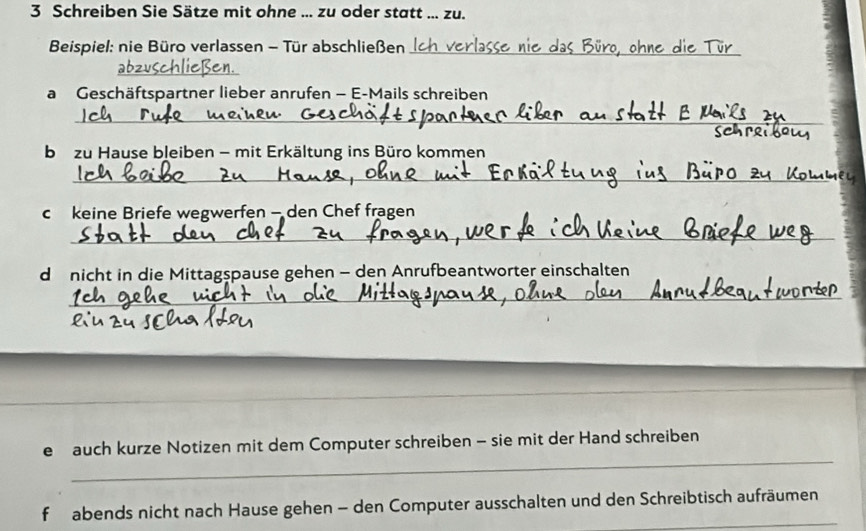 3 Schreiben Sie Sätze mit ohne ... zu oder statt ... zu.
Beispiel: nie Büro verlassen – Tür abschließen Ich verlasse nie das Büro, ohne die Tür
abzuschließen.
a Geschäftspartner lieber anrufen – E-Mails schreiben
Ich rufe meinen Geschäftspartener liber an statt E Mails zu
schreiben
b zu Hause bleiben – mit Erkältung ins Büro kommen
Ich baibe zu Hause, ohne mit Erkältung ins Büro zu kommen
c keine Briefe wegwerfen – den Chef fragen
Statt den chef zu fragen, werfe ich keine Briefe weg
d nicht in die Mittagspause gehen – den Anrufbeantworter einschalten
Ich gehe nicht in die Mittagspause, ohne den Anrufbeantworter
einzuschalten
e auch kurze Notizen mit dem Computer schreiben – sie mit der Hand schreiben
f abends nicht nach Hause gehen – den Computer ausschalten und den Schreibtisch aufräumen